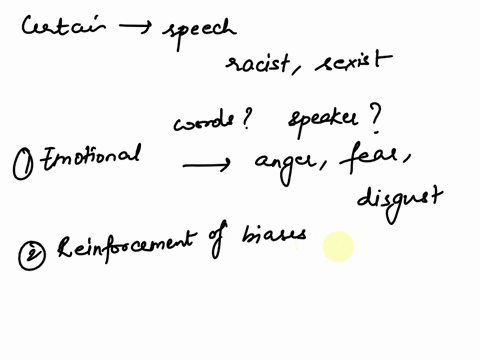 Certain → speech
racist, sexist
words? speaker?
① Emotional → anger, fear,
disgust
② Reinforcement of biases